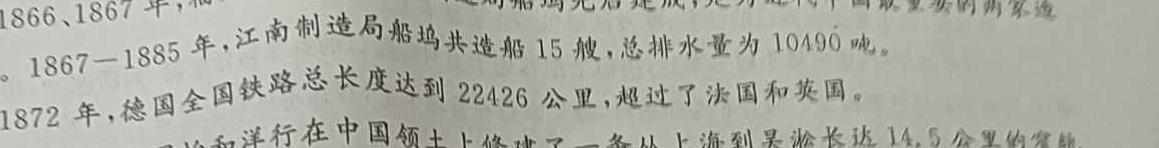 1866、1867 年,
。1867—1885 年,江南制造局船坞共造船 15 艘,总排水量为 10490 吨。
1872 年,德国全国铁路总长度达到 22426 公里,超过了法国和英国。
和洋行在中国领土上修建了一条从上海到吴淞长达 14.5 公里的窄轨